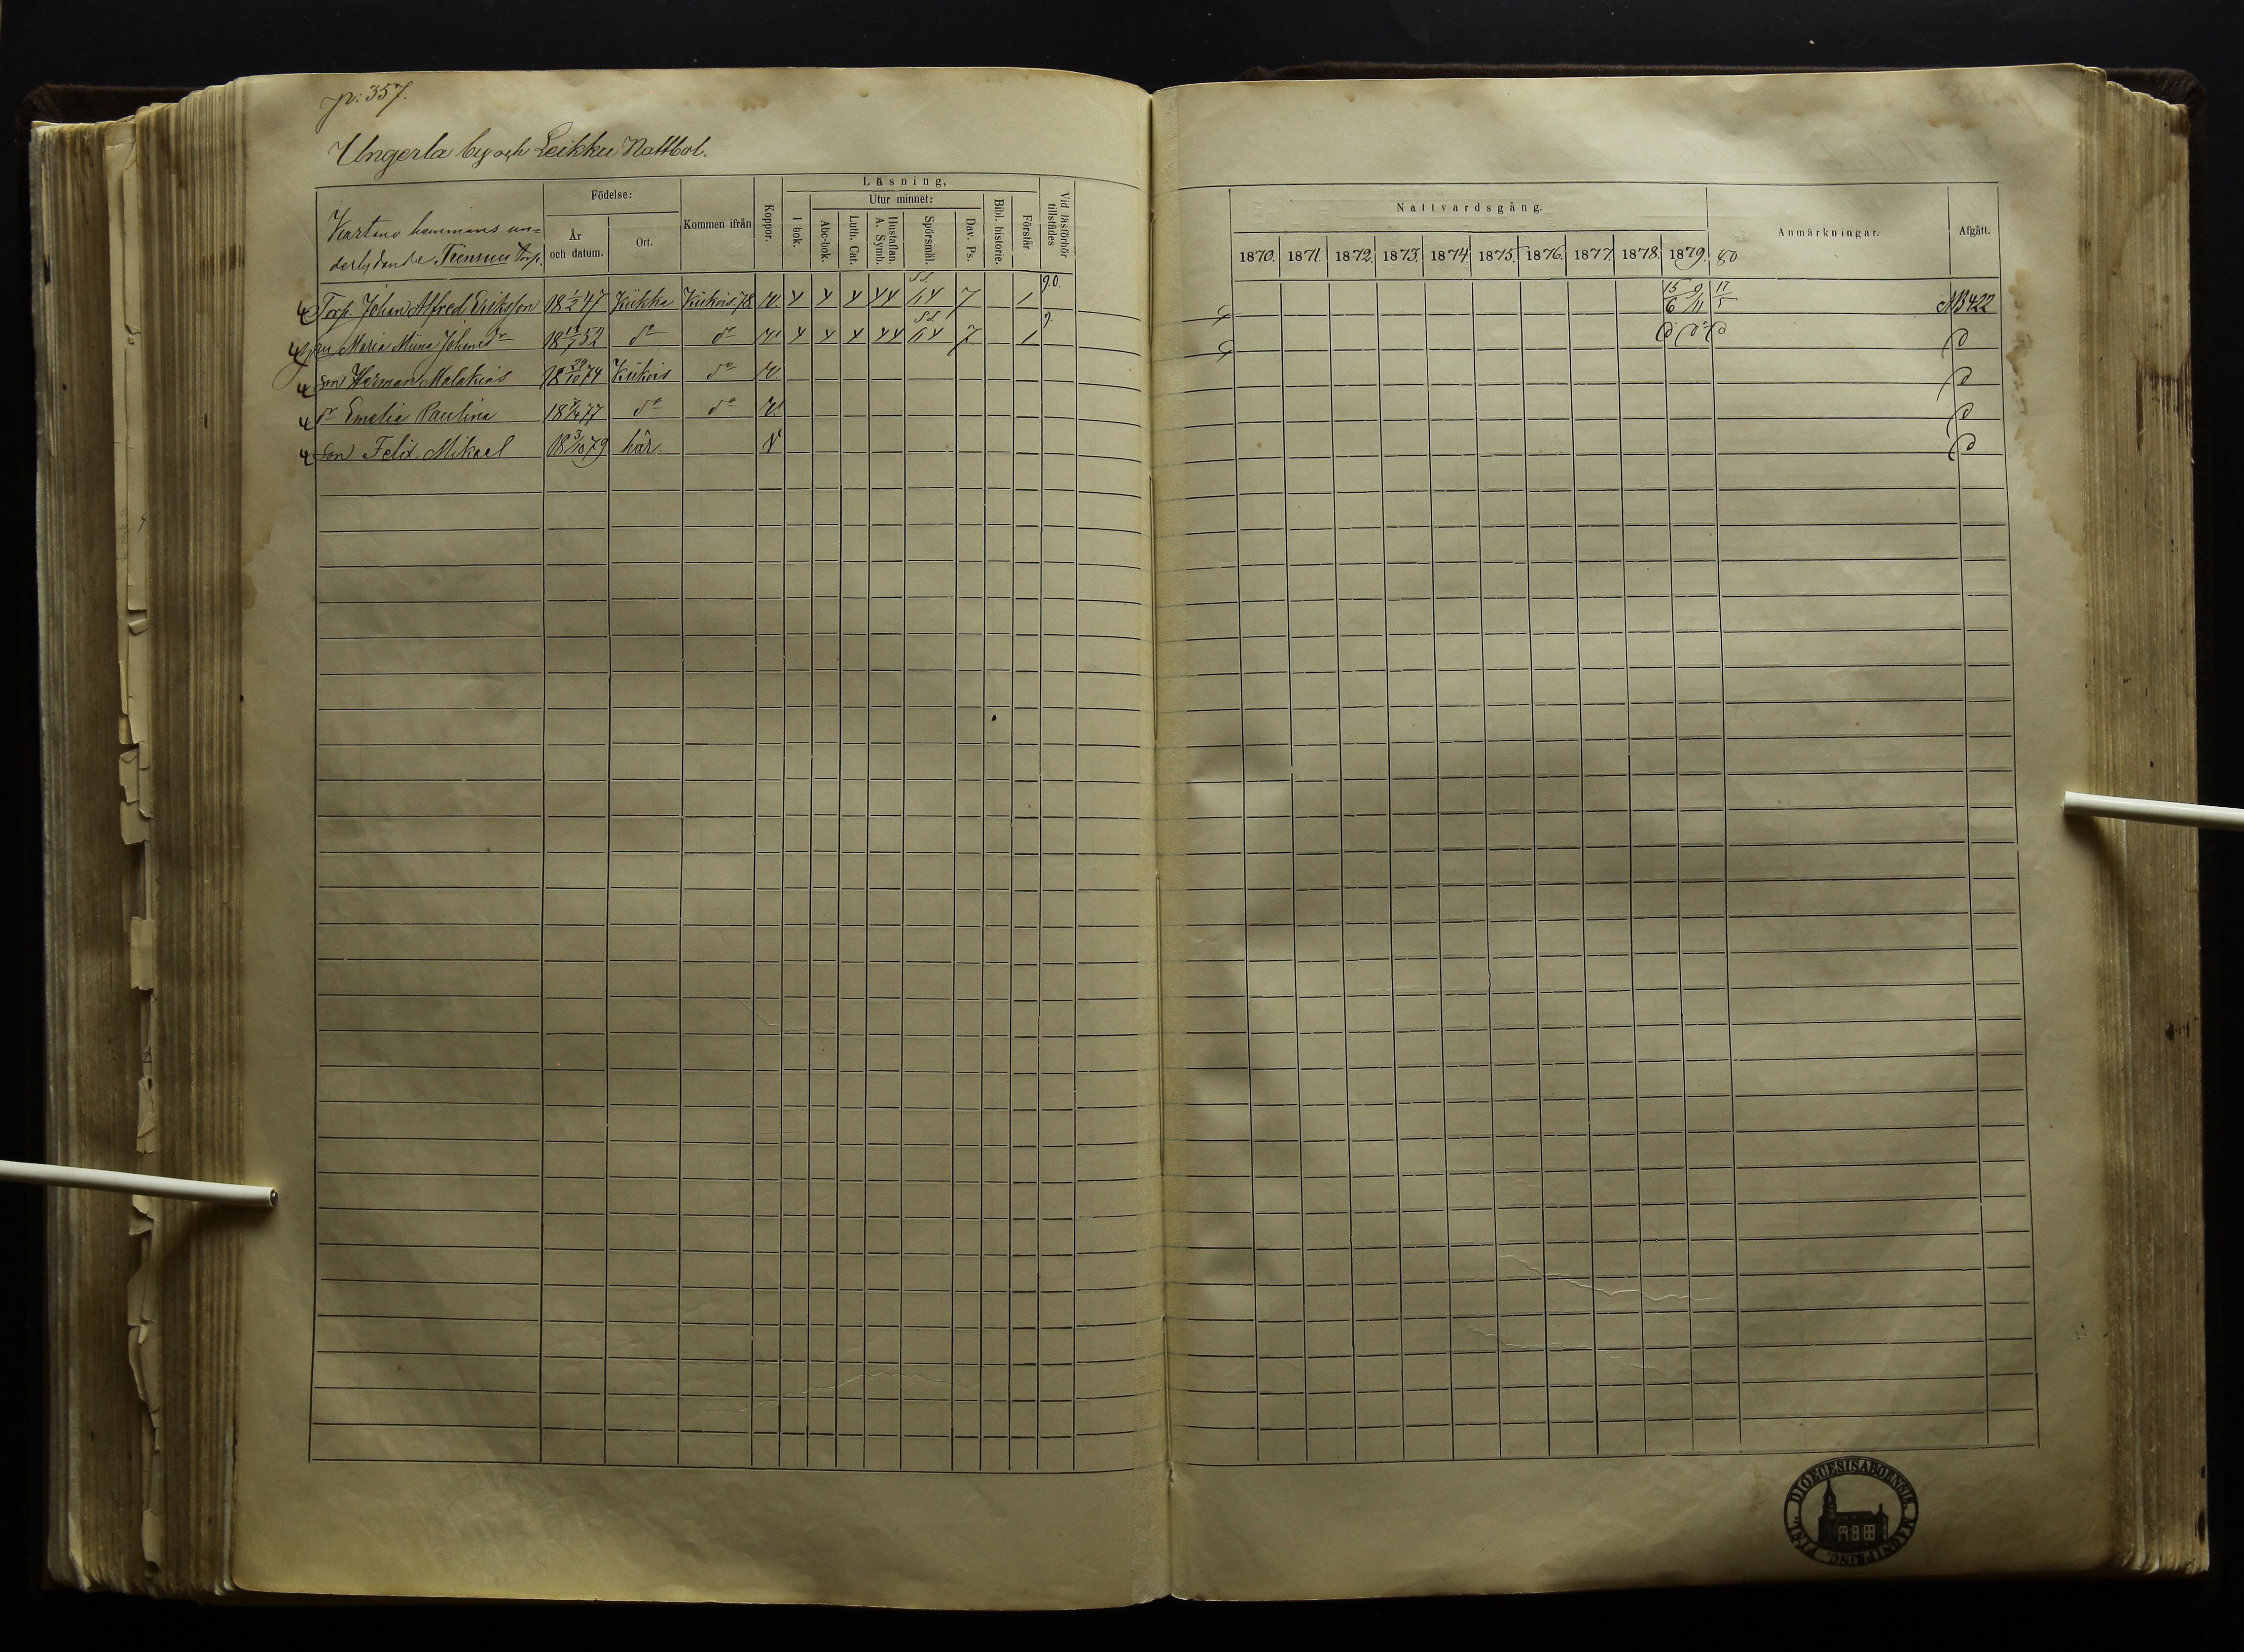 p: 357.
Ungerla by och Leikku Rattbol.
Kartano hemmans un-
derlydande Trensuu torp.
Födelse:
År och datum.
Ort.
Kommen ifrån
Koppor.
Läsning,
I bok.
Utur minnet:
Abc-bok.
Luth. Cat.
Hustaflan. A. Symb.
Spörsmål.
Dav. Ps.
Bibl. historie.
Förstår
Vid läsförhör tillstädes
Nattvardsgång.
1870. 1871. 1872. 1873. 1874. 1875. 1876. 1877. 1878. 1879. 80
Anmärkningar.
Afgått.
Torp. Johan Alfred Eriksson 18 1/2 47 Kiikka Kiikois 78 v. 7 1 9.0. 15/6 9/11 17/5 NB 422
Maria Miina Johansdr 52 do do 7 1 9.
Son Herman Malakias 18 29/10 74 Kiikois do v.
dr Emelia Paulina 77 do do v.
Son Felix Mikael 18 3/10 79 här. v
FINL. DIOECESIS ABOENSIS.